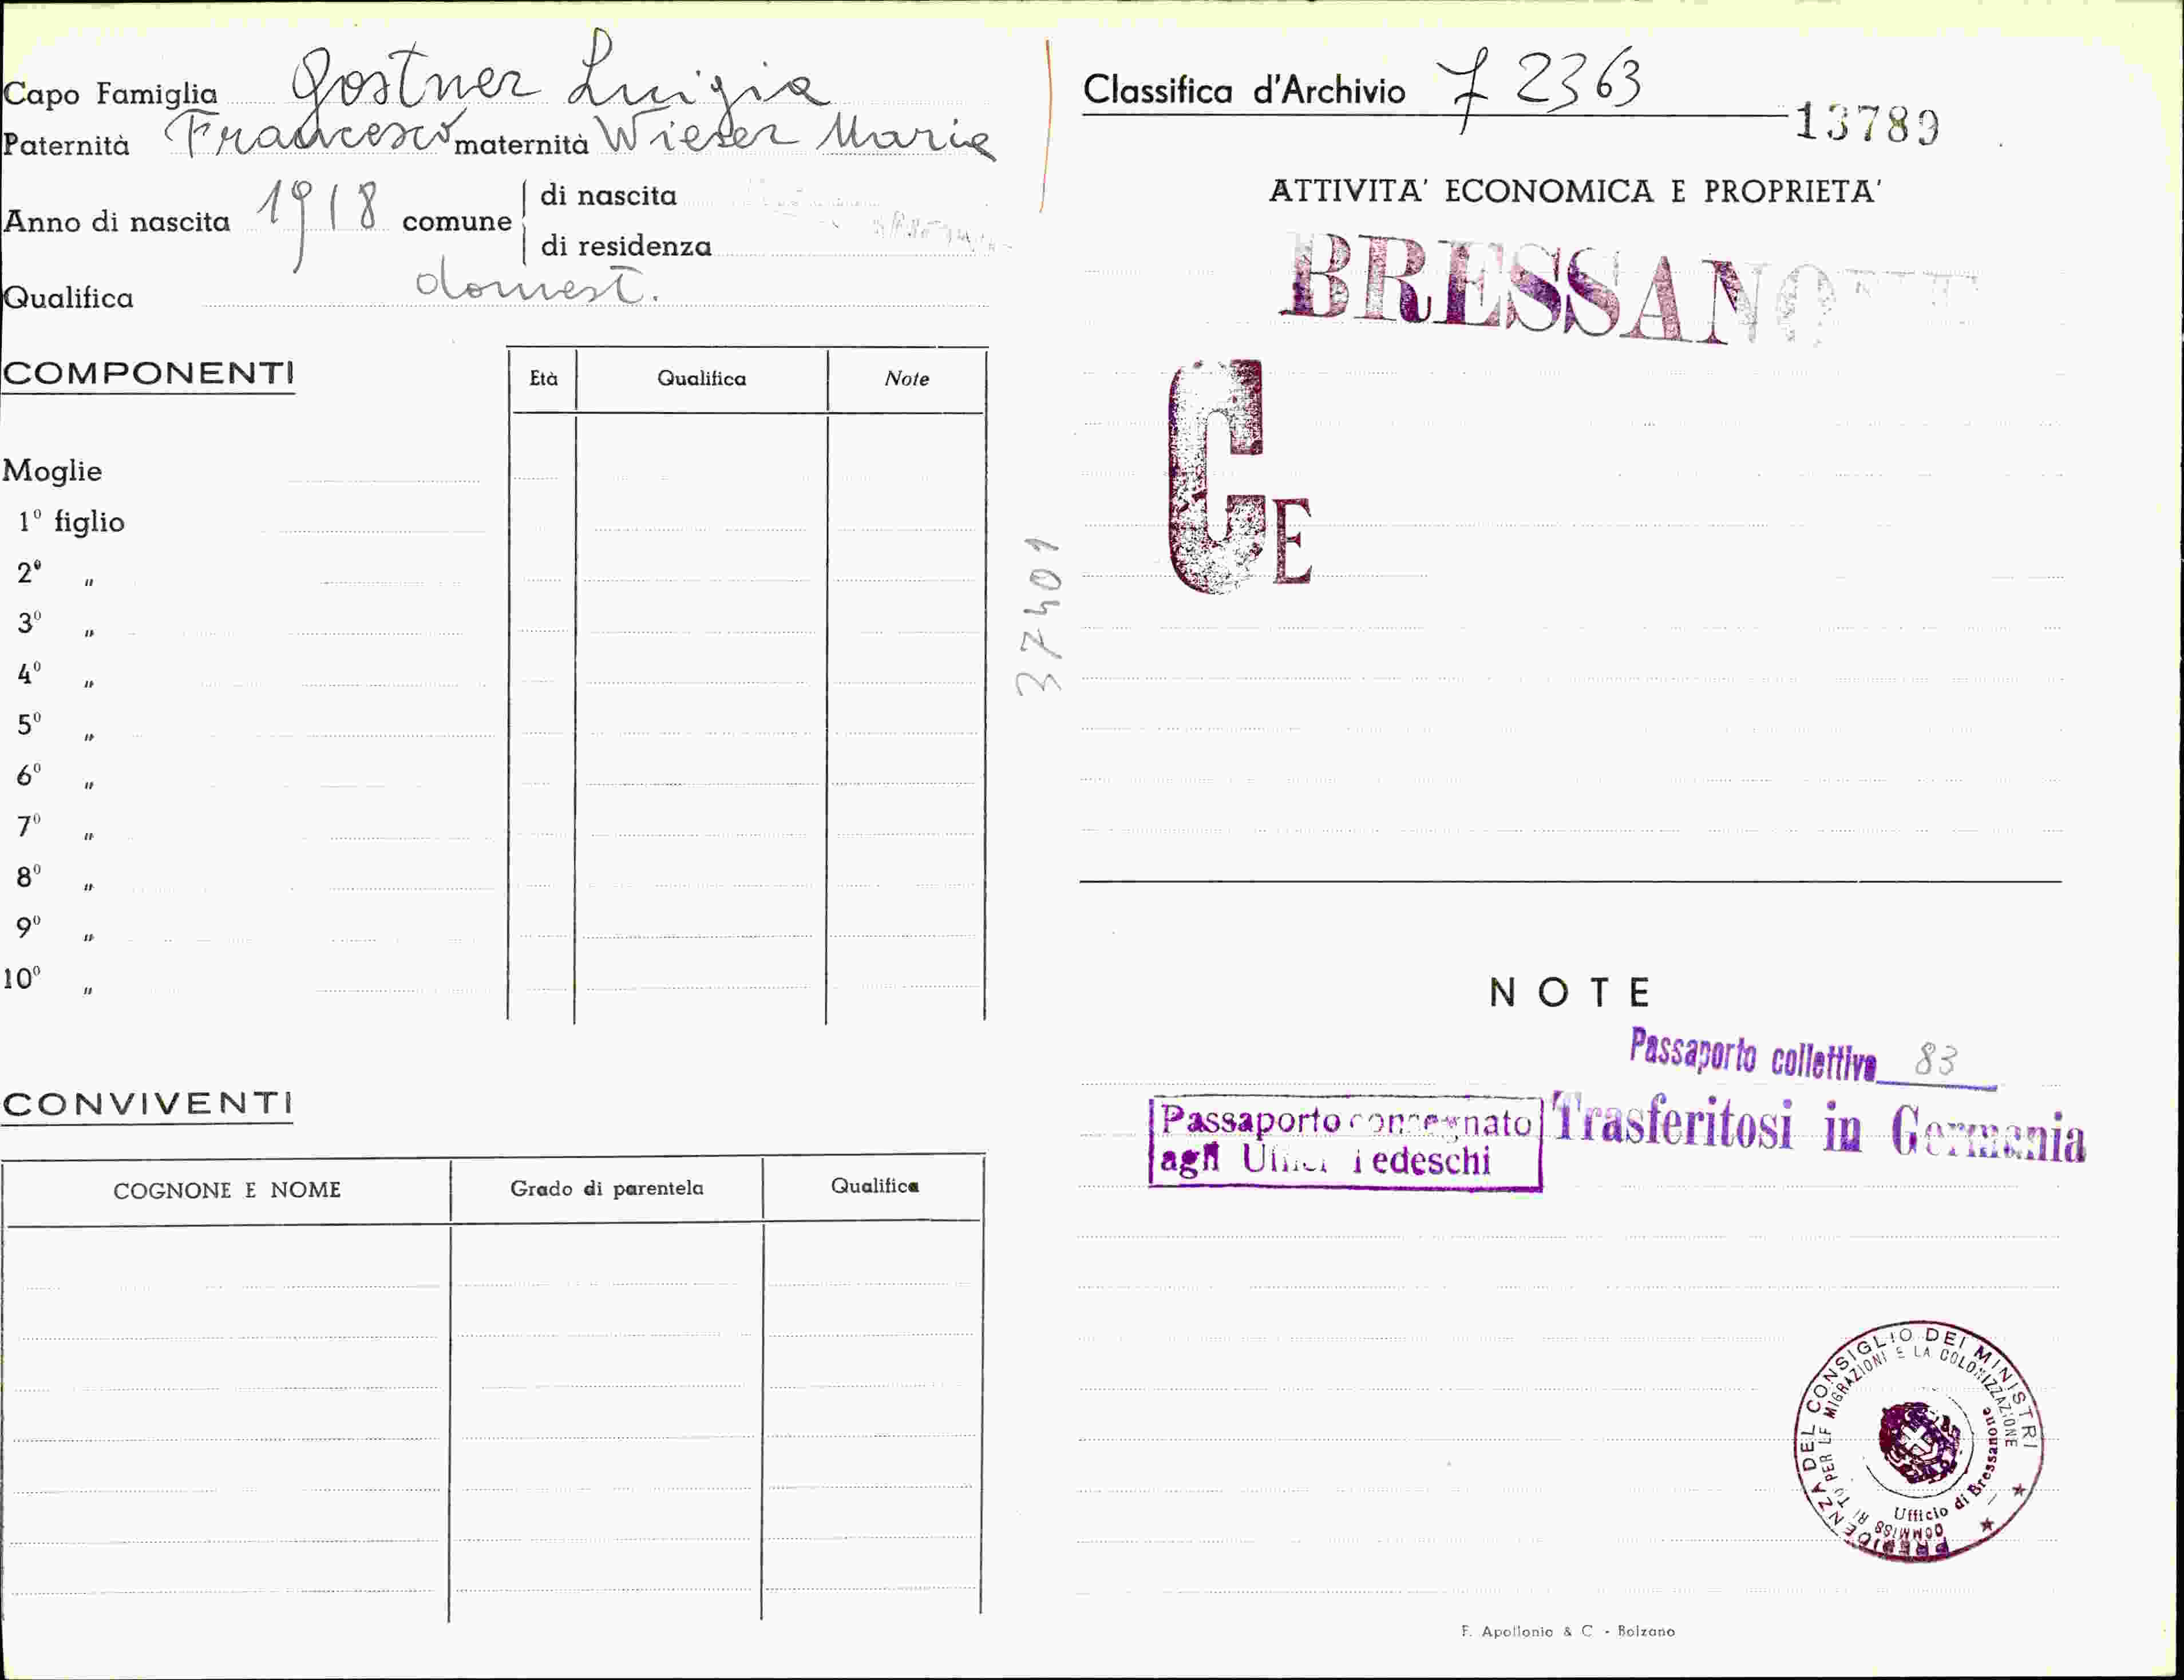 Capo Famiglia Gostner Luigia
Paternità Francesco maternità Wieser Maria
Anno di nascita 1918 comune di nascita
di residenza
Qualifica domest.
COMPONENTI
Età Qualifica Note
Moglie
1º figlio
2º "
3º "
4º "
5º "
6º "
7º "
8º "
9º "
10º "
CONVIVENTI
COGNONE E NOME Grado di parentela Qualifica
37401
Classifica d'Archivio 7 2363
13789
ATTIVITA' ECONOMICA E PROPRIETA'
BRESSANONE
CE
NOTE
Passaporto collettivo 83
Passaporto consegnato
agli Uffici Tedeschi
Trasferitosi in Germania
PRESIDENZA DEL CONSIGLIO DEI MINISTRI
PER LE MIGRAZIONI E LA COLONIZZAZIONE
Ufficio di Bressanone
F. Apollonio & C - Bolzano